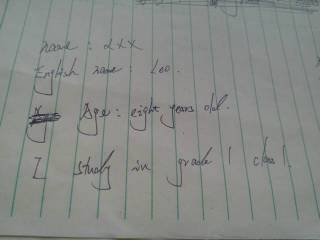 name : LXX
English name : Leo.
Age : eight years old.
I study in grade 1 class 1.